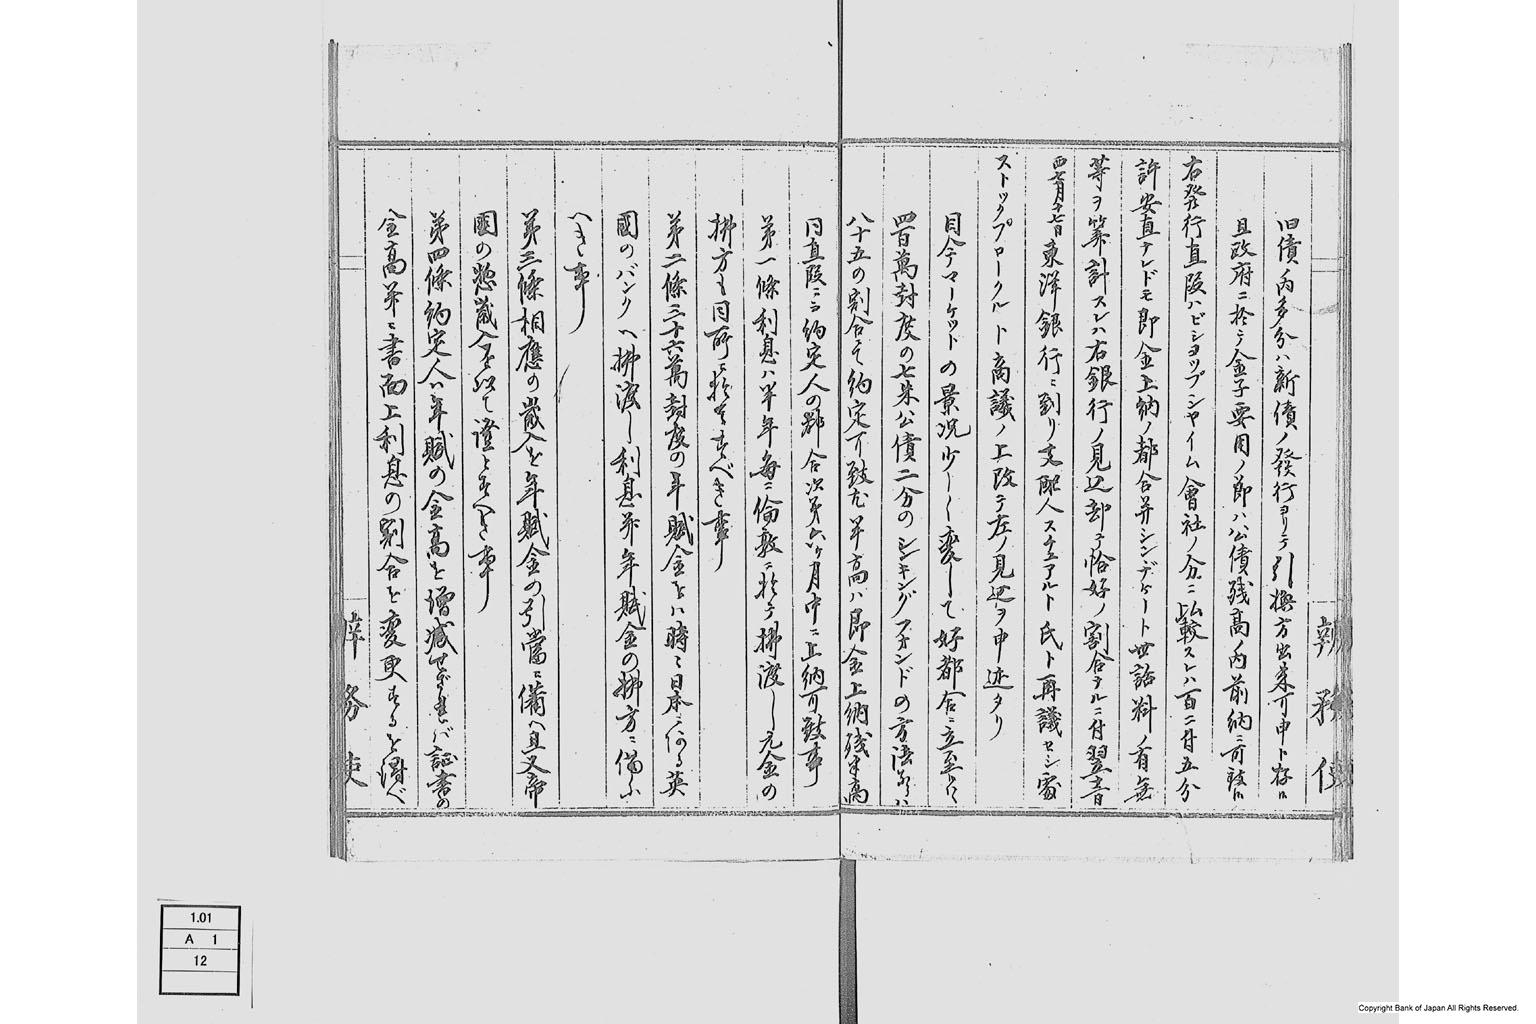 旧債ノ内多分ハ新債ノ發行ヨリテ引換方出来可申ト存候
且政府ニ於テ金子要用ノ節ハ公債残高ノ内前納ニ可致候
右發行直段ハビショップシヤイム會社ノ分ニ比較スレハ百ニ付五分
許安直ナレドモ即金上納ノ都合并シンヂケート世話料ノ有無
等ヲ算計スレハ右銀行ノ見込却テ恰好ノ割合ナルニ付翌
西七月十七日東洋銀行ニ到リ支配人スチュアルト氏ト再議セシ處
ストックブロークルト商議ノ上改テ左ノ見込ヲ申述タリ
目今マーケットの景況少しく変して好都合ニ立至候
四百萬封度の七朱公債二分のシンキングフオンドの方法ならハ
八十五の割合にて約定可致尤半高ハ即金上納残半高
同直段ニ而約定人の都合次第六ヶ月中ニ上納可致事
第一條利息ハ半年毎ニ倫敦ニ於テ拂渡し元金の
拂方も同所ニ於てすべき事
第二條三十六萬封度の年賦金をハ時々日本に在る英
國のバンクへ拂渡し利息并年賦金の拂方ニ備ふ
へき事
第三條相應の歳入を年賦金の引當ニ備へ且又帝
國の惣歳入を以て證とすへき事
第四條約定人ハ年賦の金高を増減せざれば証書の
金高并ニ書面上利息の割合を変更するを得べ
辨務使
辨務使
1.01
A 1
12
Copyright Bank of Japan All Rights Reserved.